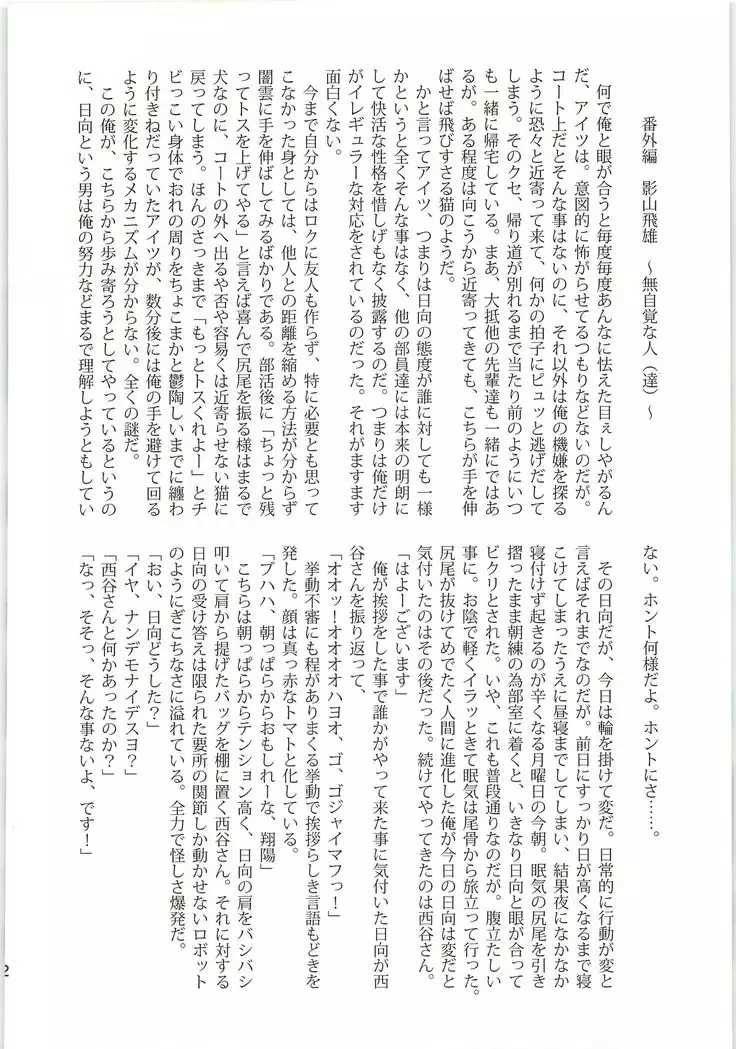 番外編　影山飛雄　～無自覚な人（達）～
何で俺と眼が合うと毎度毎度あんなに怯えた目ぇしやがるん
だ、アイツは。意図的に怖がらせてるつもりなどないのだが。
コート上だとそんな事はないのに、それ以外は俺の機嫌を探る
ように恐々と近寄って来て、何かの拍子にピュッと逃げだして
しまう。そのクセ、帰り道が別れるまで当たり前のようにいつ
も一緒に帰宅している。まあ、大抵他の先輩達も一緒にではあ
るが。ある程度は向こうから近寄ってきても、こちらが手を伸
ばせば飛びすさる猫のようだ。
かと言ってアイツ、つまりは日向の態度が誰に対しても一様
かというと全くそんな事はなく、他の部員達には本来の明朗に
して快活な性格を惜しげもなく披露するのだ。つまりは俺だけ
がイレギュラーな対応をされているのだった。それがますます
面白くない。
今まで自分からはロクに友人も作らず、特に必要とも思って
こなかった身としては、他人との距離を縮める方法が分からず
闇雲に手を伸ばしてみるばかりである。部活後に「ちょっと残
ってトスを上げてやる」と言えば喜んで尻尾を振る様はまるで
犬なのに、コートの外へ出るや否や容易くは近寄らせない猫に
戻ってしまう。ほんのさっきまで「もっとトスくれよー」とチ
ビっこい身体でおれの周りをちょこまかと鬱陶しいまでに纏わ
り付きねだっていたアイツが、数分後には俺の手を避けて回る
ように変化するメカニズムが分からない。全くの謎だ。
この俺が、こちらから歩み寄ろうとしてやっているというの
に、日向という男は俺の努力などまるで理解しようともしてい
ない。ホント何様だよ。ホントにさ……。
その日向だが、今日は輪を掛けて変だ。日常的に行動が変と
言えばそれまでなのだが。前日にすっかり日が高くなるまで寝
こけてしまったうえに昼寝までしてしまい、結果夜になかなか
寝付けず起きるのが辛くなる月曜日の今朝。眠気の尻尾を引き
摺ったまま朝練の為部室に着くと、いきなり日向と眼が合って
ビクリとされた。いや、これも普段通りなのだが。腹立たしい
事に。お陰で軽くイラッときて眠気は尾骨から旅立って行った。
尻尾が抜けてめでたく人間に進化した俺が今日の日向は変だと
気付いたのはその後だった。続けてやってきたのは西谷さん。
「はよーございます」
俺が挨拶をした事で誰かがやって来た事に気付いた日向が西
谷さんを振り返って、
「オオッ！オオオオハヨオ、ゴ、ゴジャイマフっ！」
挙動不審にも程がありまくる挙動で挨拶らしき言語もどきを
発した。顔は真っ赤なトマトと化している。
「ブハハ、朝っぱらからおもしれーな、翔陽」
こちらは朝っぱらからテンション高く、日向の肩をバシバシ
叩いて肩から提げたバッグを棚に置く西谷さん。それに対する
日向の受け答えは限られた要所の関節しか動かせないロボット
のようにぎこちなさに溢れている。全力で怪しさ爆発だ。
「おい、日向どうした？」
「イヤ、ナンデモナイデスヨ？」
「西谷さんと何かあったのか？」
「なっ、そそっ、そんな事ないよ、です！」
2